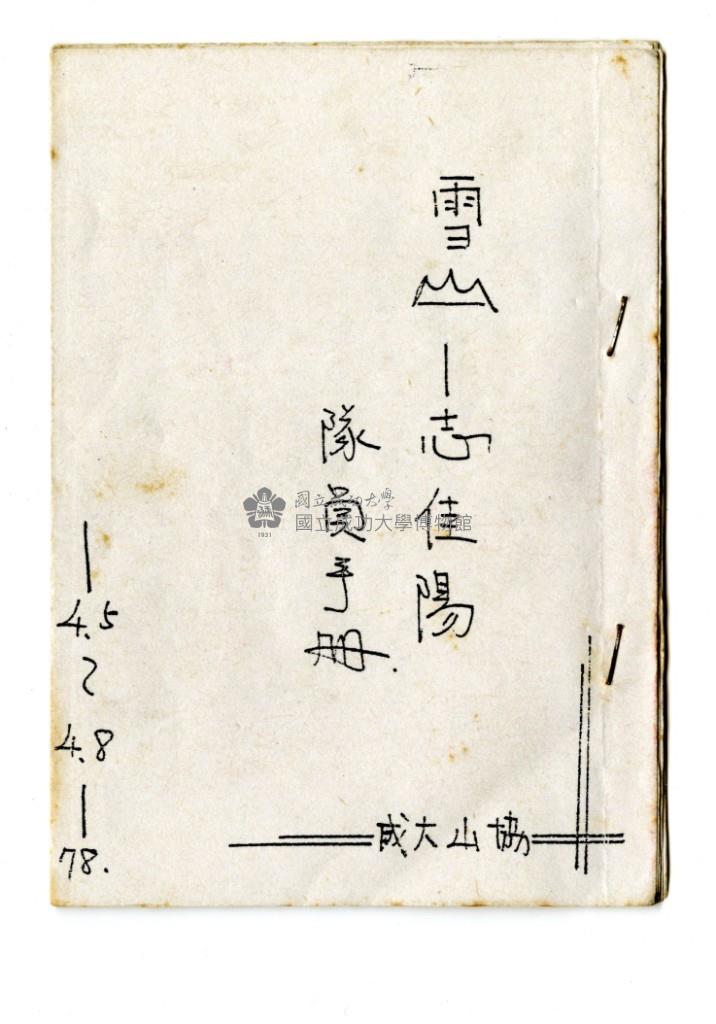 雪山—志佳陽
隊員手冊.
—4.5~4.8—78.
成大山協
國立成功大學
國立成功大學博物館
1931